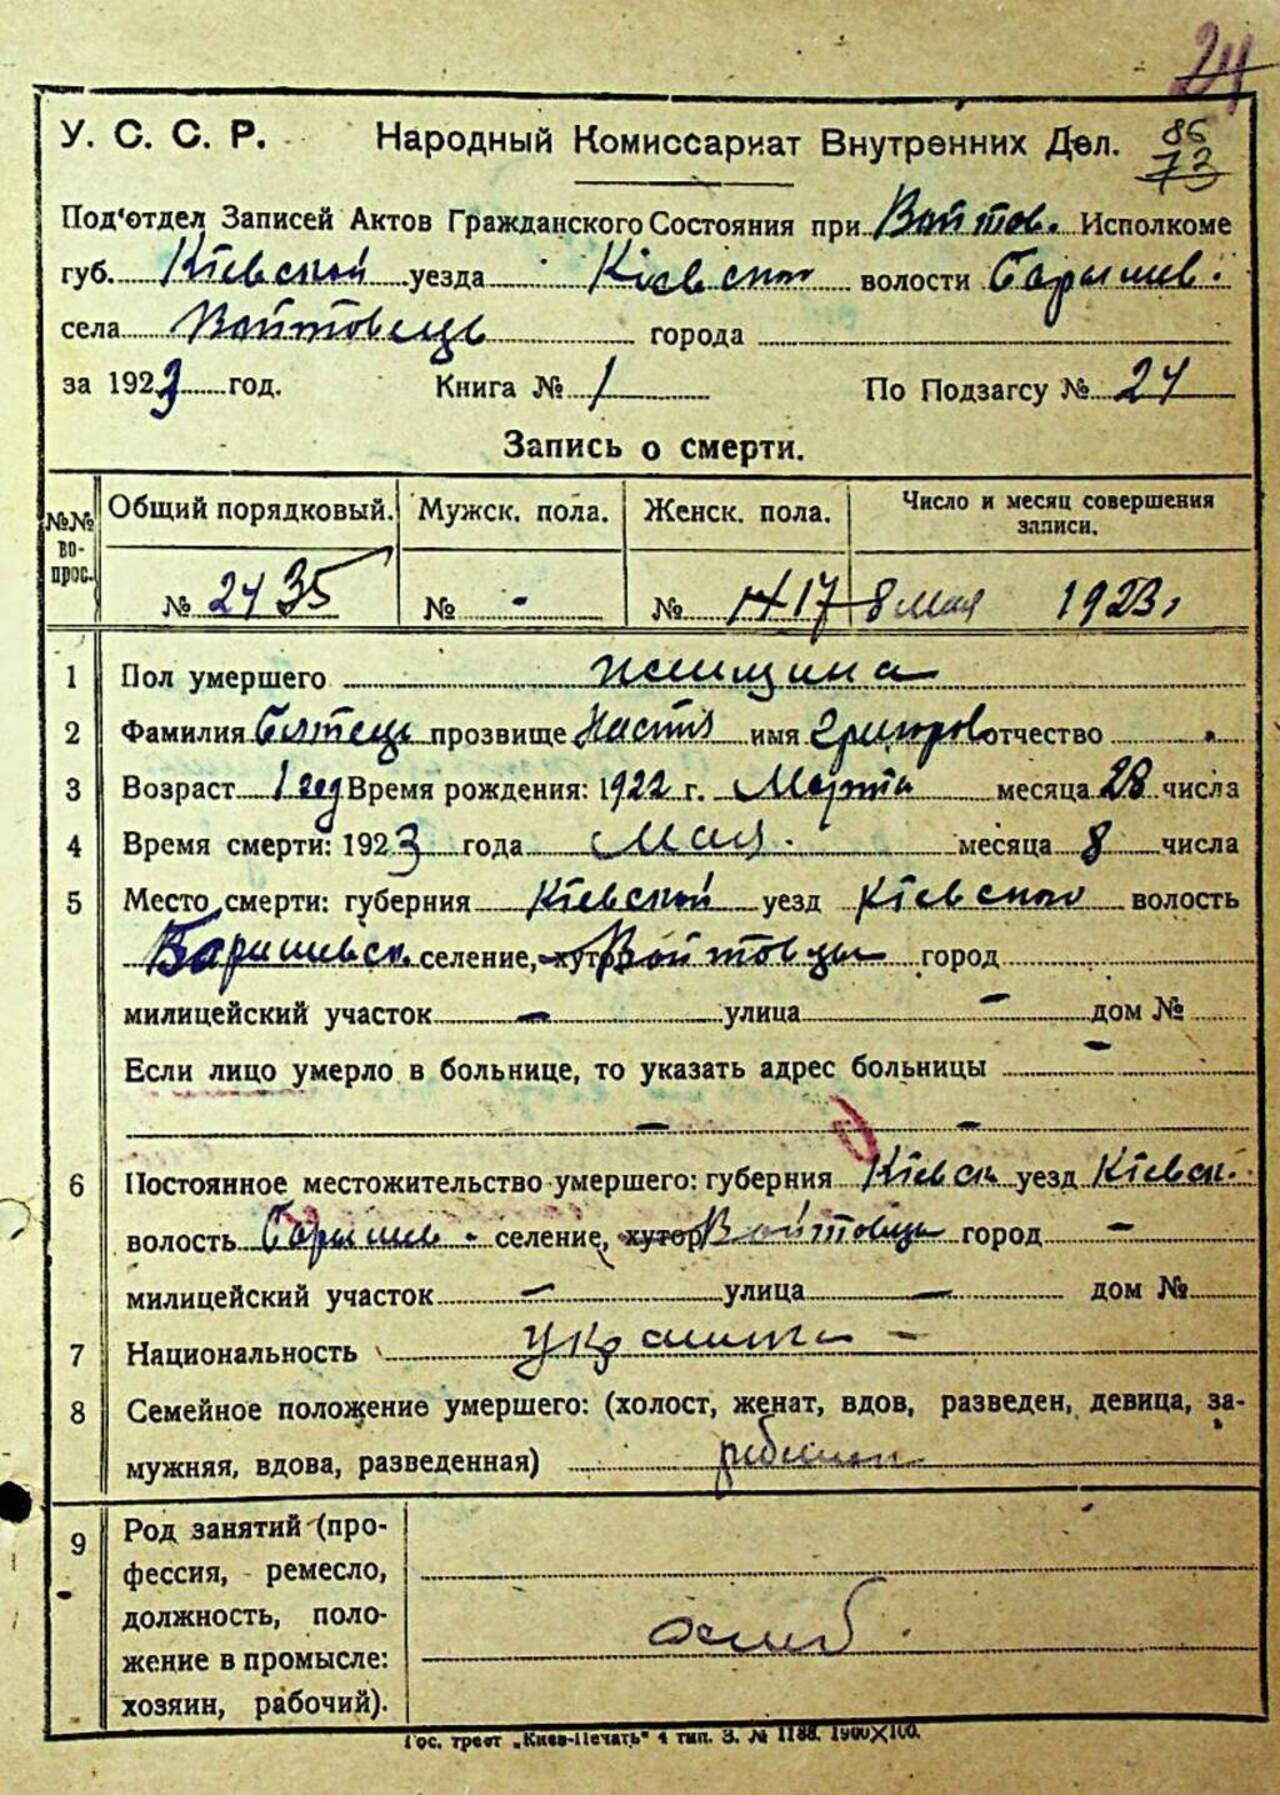 24
У. С. С. Р. Народный Комиссариат Внутренних Дел. 86
73
Под‘отдел Записей Актов Гражданского Состояния при Войтов. Исполкоме
губ. Кіевской уезда Кіевского волости Барышев.
села Войтовець города
за 1923 год. Книга № 1 По Подзагсу № 24
Запись о смерти.
№№ во- прос. Общий порядковый. Мужск. пола. Женск. пола. Число и месяц совершения записи.
№ 24 35 № - № 14 17 8 мая 1923,
1 Пол умершего женщина
2 Фамилия прозвище Настя имя Григоров отчество
3 Возраст 1 год Время рождения: 1922 г. Марта месяца 28 числа
4 Время смерти: 1923 года Мая месяца 8 числа
5 Место смерти: губерния Кіевской уезд Кіевского волость
Баришевск. селение, хутор Войтовцы город
милицейский участок — улица — дом №
Если лицо умерло в больнице, то указать адрес больницы —
— —
6 Постоянное местожительство умершего: губерния Кіевск уезд Кіевск.
волость Барышев. селение, хутор Войтовцы город —
милицейский участок — улица — дом №
7 Национальность украинка —
8 Семейное положение умершего: (холост, женат, вдов, разведен, девица, за-
мужняя, вдова, разведенная) ребенок
9 Род занятий (про-
фессия, ремесло,
должность, поло-
жение в промысле:
хозяин, рабочий).
Гос. трест „Киев-Печать“ 4 тип. З. № 1188. 1900X100.